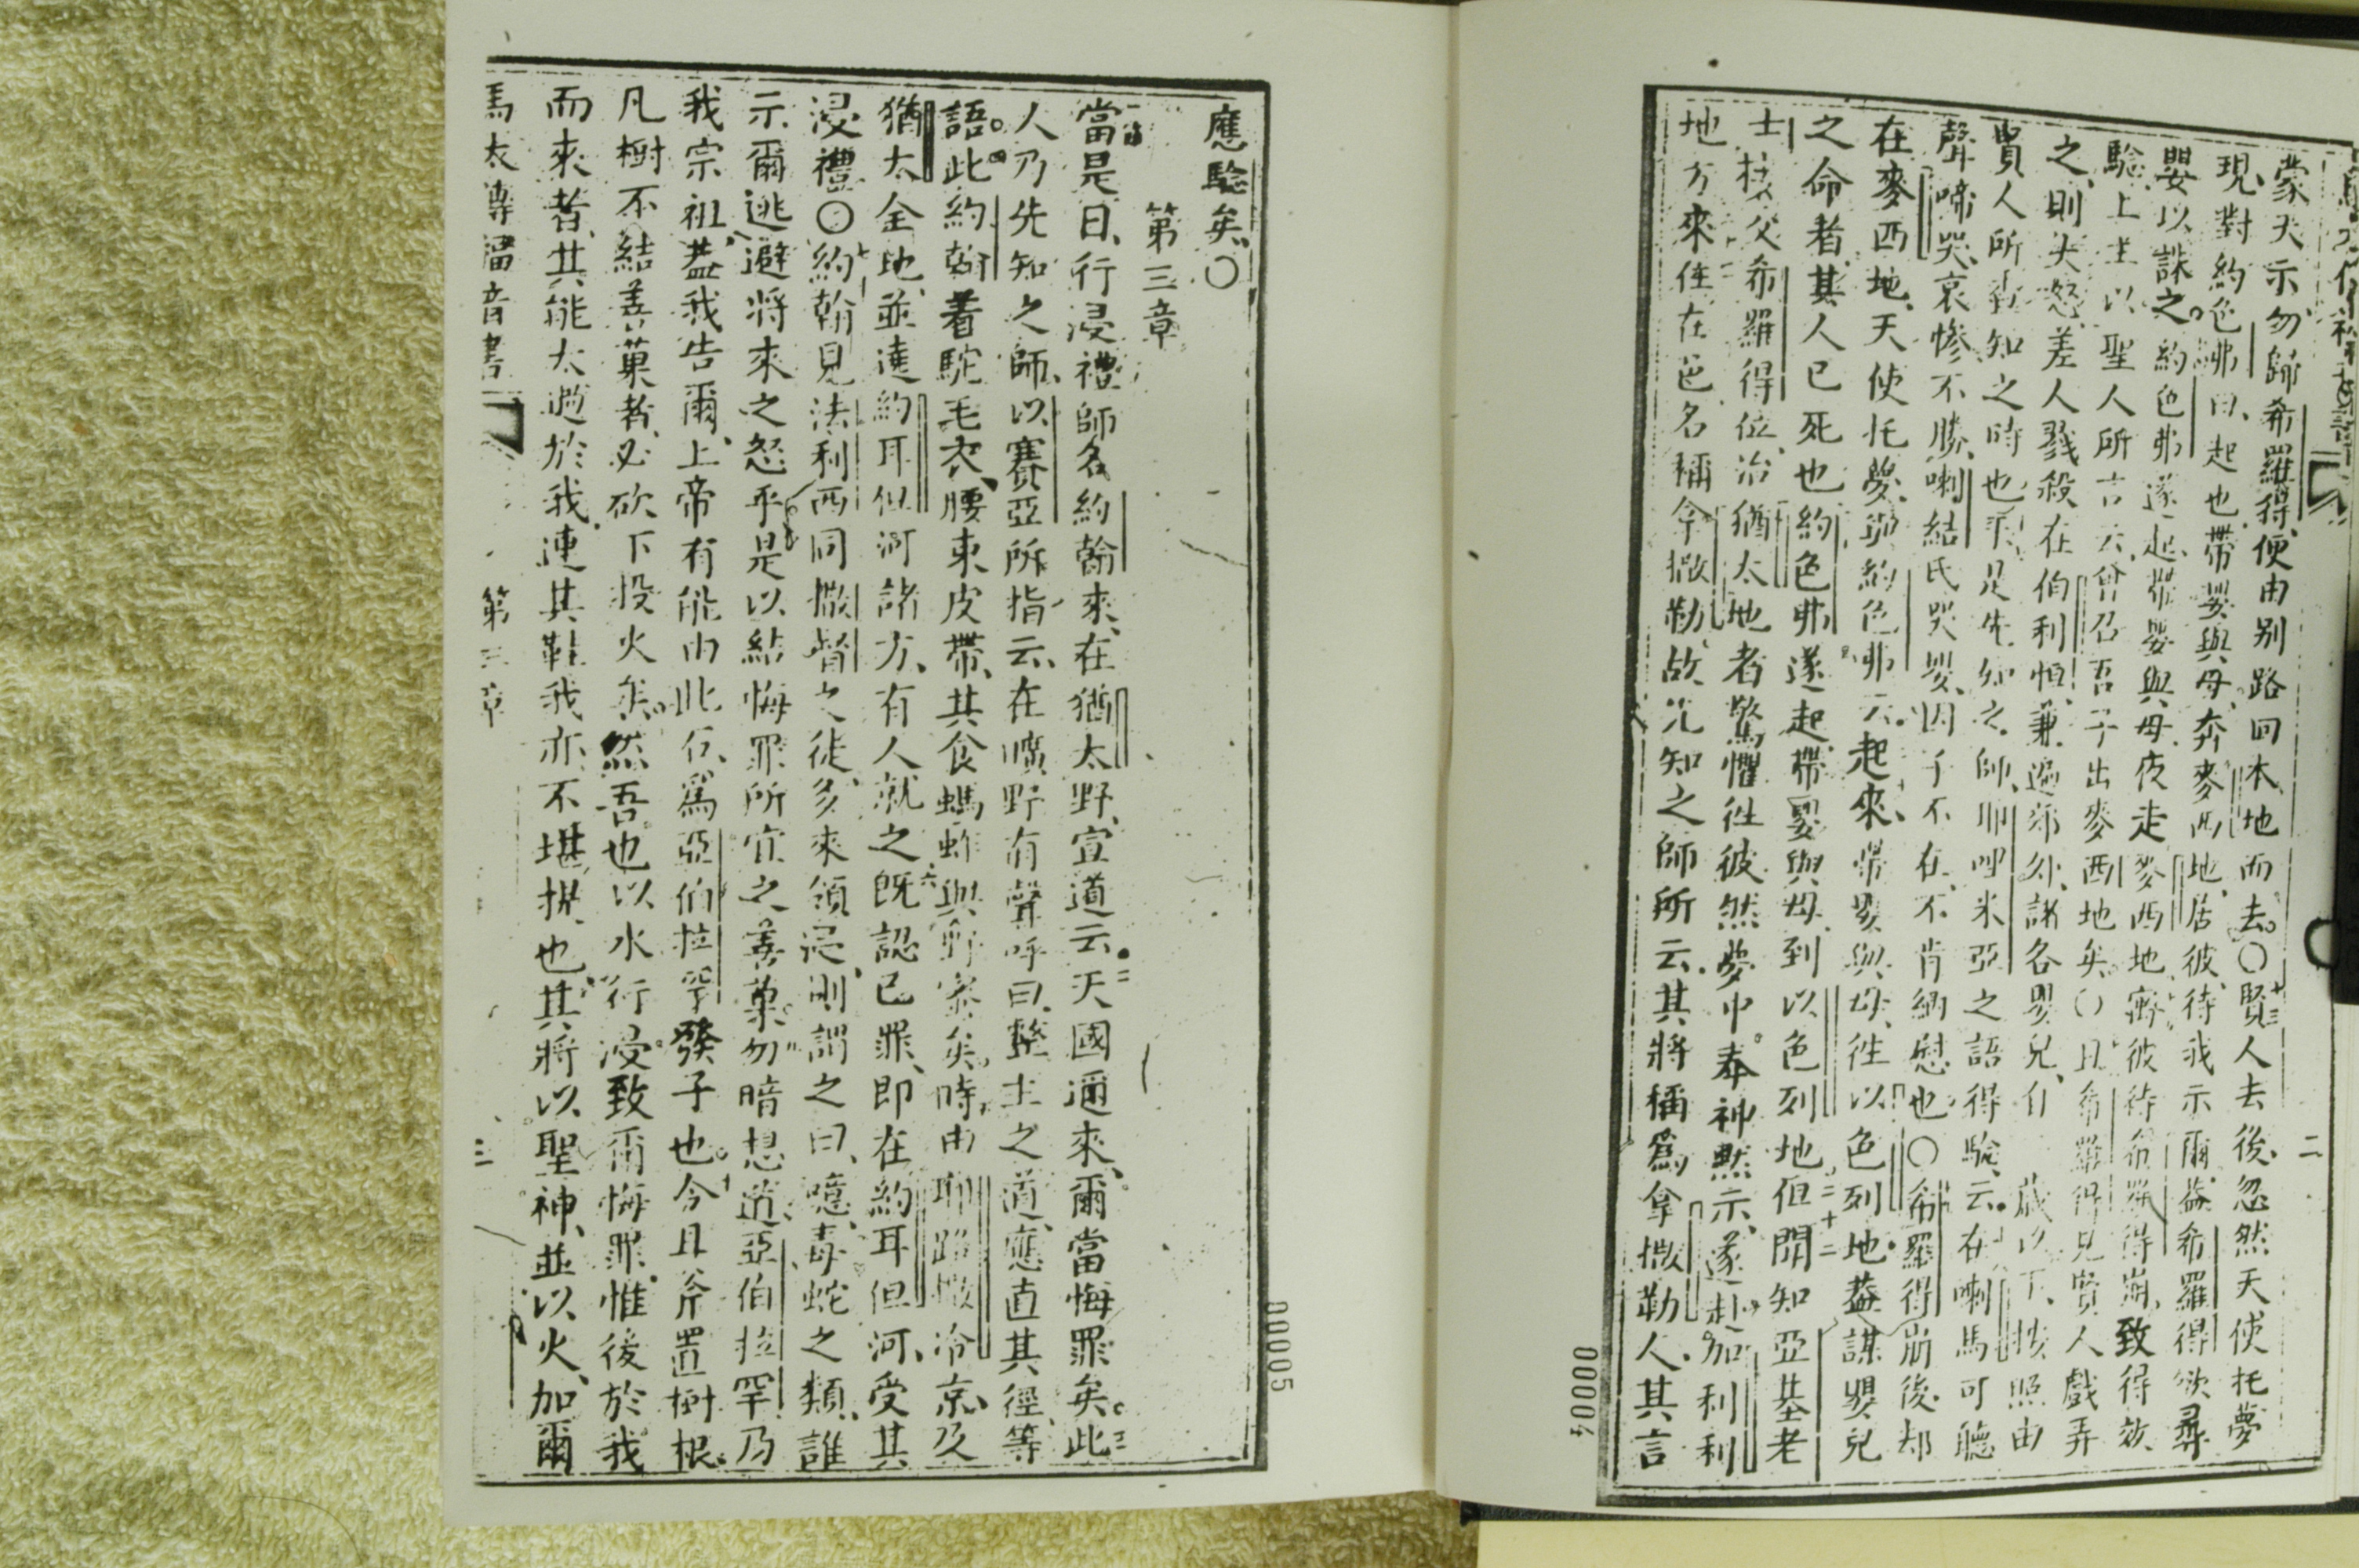 二
蒙天示勿歸希羅得、便由別路回本地而去。〇賢人去後、忽然天使托夢
現、對約色弗曰、起也、帶嬰與母、奔麥西地、居彼、待我示爾、蓋希羅得欲尋
嬰以誅之。約色弗遂起、帶嬰與母、夜走麥西地、寓彼待希羅得崩、致得效
驗上主以聖人所言云、曾召吾子出麥西地矣。〇且希羅得見賢人戲弄
之、則大怒、差人戮殺在伯利恒、兼遍郊外、諸各嬰兒、自 歲以下、按照由
賢人所 知之時也、于是先知之師、耶哩米亞之語得驗、云、在喇馬可聽
聲啼哭、哀慘不勝、喇結氏哭嬰、因子不在、不肯納慰也。〇希羅得崩後、却
在麥西地、天使托夢、與約色弗云、起來、帶嬰與母、徃以色列地、蓋謀嬰兒
之命者、其人已死也、約色弗遂起、帶嬰與母、到以色列地、但聞知亞基老
士接父希羅得位、治猶太地者、驚懼徃彼、然夢中、奉神默示、遂赴加利利
地方、來住在邑名稱拿撒勒、故先知之師所云、其將稱爲拿撒勒人、其言
00004
應驗矣、〇
第三章
當是日、行浸禮師名約翰來、在猶太野、宣道云、天國邇來、爾當悔罪矣。此
人乃先知之師、以賽亞所指云、在曠野有聲呼曰、整主之道、應直其徑、等
語。此約翰着駝毛衣、腰束皮帶、其食螞蚱與野蜜矣。時、由耶路撒冷京、及
猶太全地、並達約耳但河諸方、有人就之、既認己罪、即在約耳但河、受其
浸禮。〇約翰見法利西同撒督之徒、多來領浸、則謂之曰、噫、毒蛇之類、誰
示爾逃避將來之怒乎、是以結悔罪所宜之善菓、勿暗想道、亞伯拉罕乃
我宗祖、蓋我告爾、上帝有能由此石、爲亞伯拉罕發子也。今且斧置樹根。
凡樹不結善菓者、必砍下投火矣。然吾也以水行浸、致爾悔罪、惟後於我
而來者、其能太過於我、連其鞋我亦不堪提也、其將以聖神、並以火、加爾
馬太傳福音書 第三章 三
00005